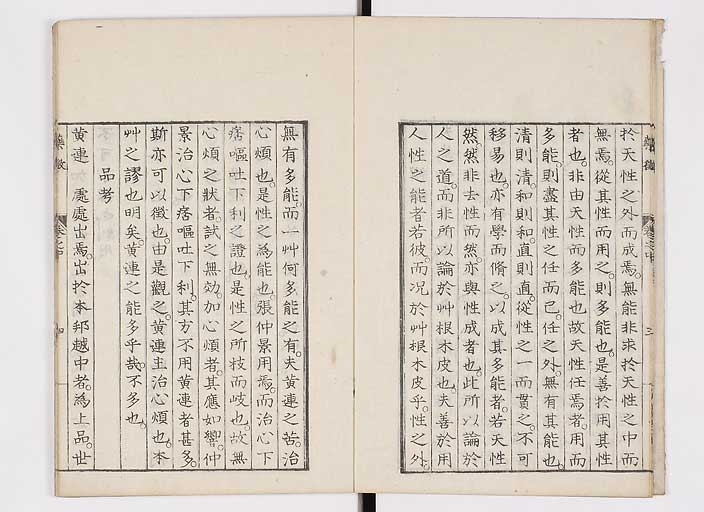 於天性之外而成焉。無能非求於天性之中而
無焉。從其性而用之。則多能也。是善於用其性
者也。非由天性而多能也。故天性任焉者。用而
多能。則盡其性之任而已。任之外。無有其能也。
清則清。和則和。直則直。從性之一而貫之。不可
移易也。亦有學而脩之。以成其多能者。若天性
然。然非去性而然。亦與性成者也。此所以論於
人之道。而非所以論於艸根木皮也。夫善於用
人性之能者若彼。而況於艸根木皮乎。性之外。
無有多能。而一艸何多能之有。夫黄連之苦。治
心煩也。是性之爲能也。張仲景用焉。而治心下
痞嘔吐下利之證也。是性之所枝而岐也。故無
心煩之狀者。試之無効。加心煩者。其應如響。仲
景治心下痞嘔吐下利。其方不用黄連者甚多。
斯亦可以徴也。由是觀之。黄連主治心煩也。本
艸之謬也明矣。黄連之能多乎哉。不多也。
品考
黄連 處處出焉。出於本邦越中者。爲上品。世
藥徴
卷之中
三
藥徴
卷之中
四